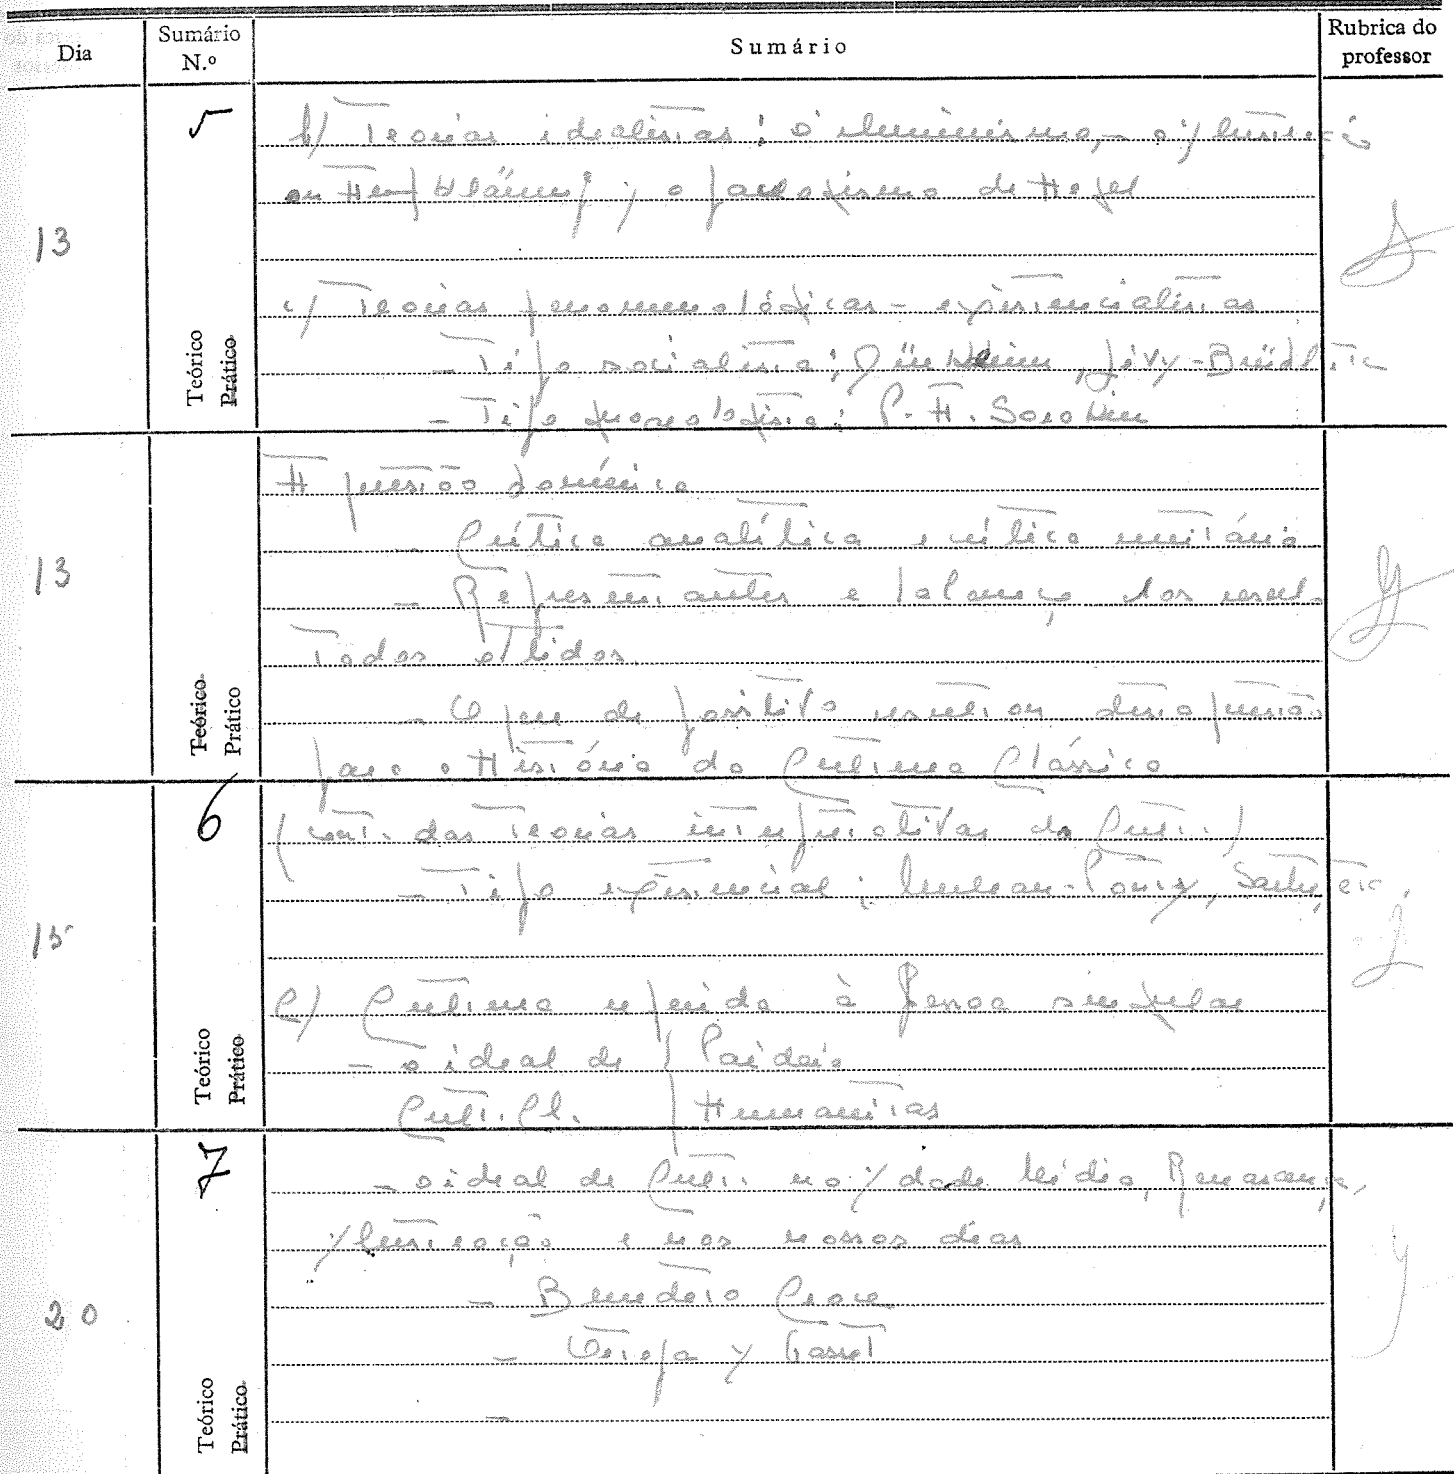 Dia
Sumário N.º
Sumário
Rubrica do professor
13
5
Teórico
Prático
b) Teorias idealistas: o iluminismo, a Ilustração
ou Aufklärung; o panlogismo de Hegel
c) Teorias fenomenológicas - existencialistas
- Tipo socialista: Dürkheim, Lévy-Brühl, etc
- Tipo gnoseológico: P. A. Sorokin
13
Teórico
Prático
A questão homérica
- Crítica analítica e crítica unitária
- Representantes e balanço dos resul-
tados obtidos.
- O que de positivo resultou desta questão
para a História da Cultura Clássica
15
6
Teórico
Prático
(cont. das Teorias interpretativas da Cult.)
- Tipo existencial: Merleau-Ponty, Sartre, etc.
C) Cultura referida à pessoa singular
- o ideal de Paideia
Cult. Cl. Humanitas
20
7
Teórico
Prático
- o ideal de Cult. na Idade Média, Renascença,
Ilustração e nos nossos dias
- Benedeto Croce
- Ortega y Gasset
-